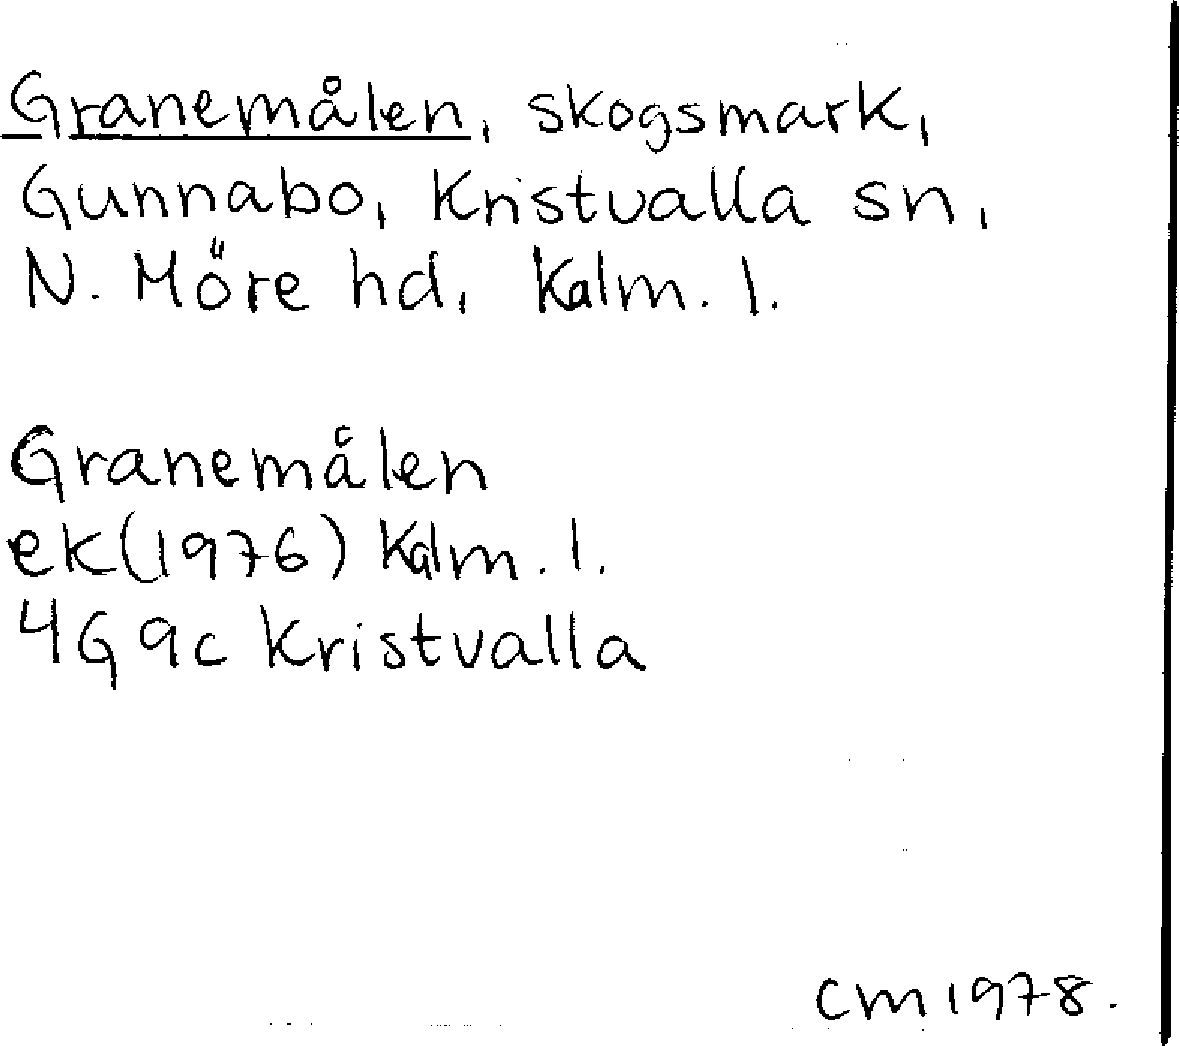 Granemålen, skogsmark,
Gunnabo, Kristvalla sn,
N. Möre hd, Kalm. l.
Granemålen
ek(1976) Kalm. l.
4G 9c Kristvalla
CM 1978.